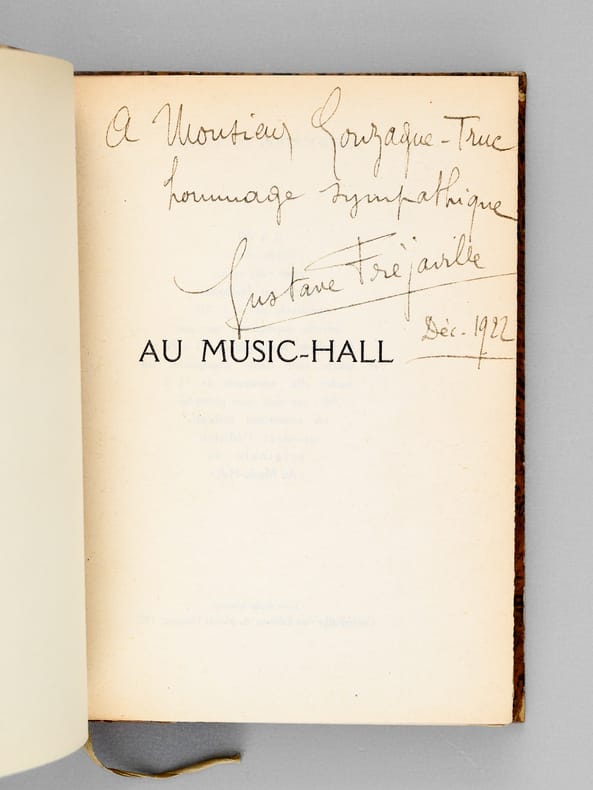 A Monsieur Gonzague-Truc
hommage sympathique
Gustave Fréjaville
Déc. 1922
AU MUSIC-HALL